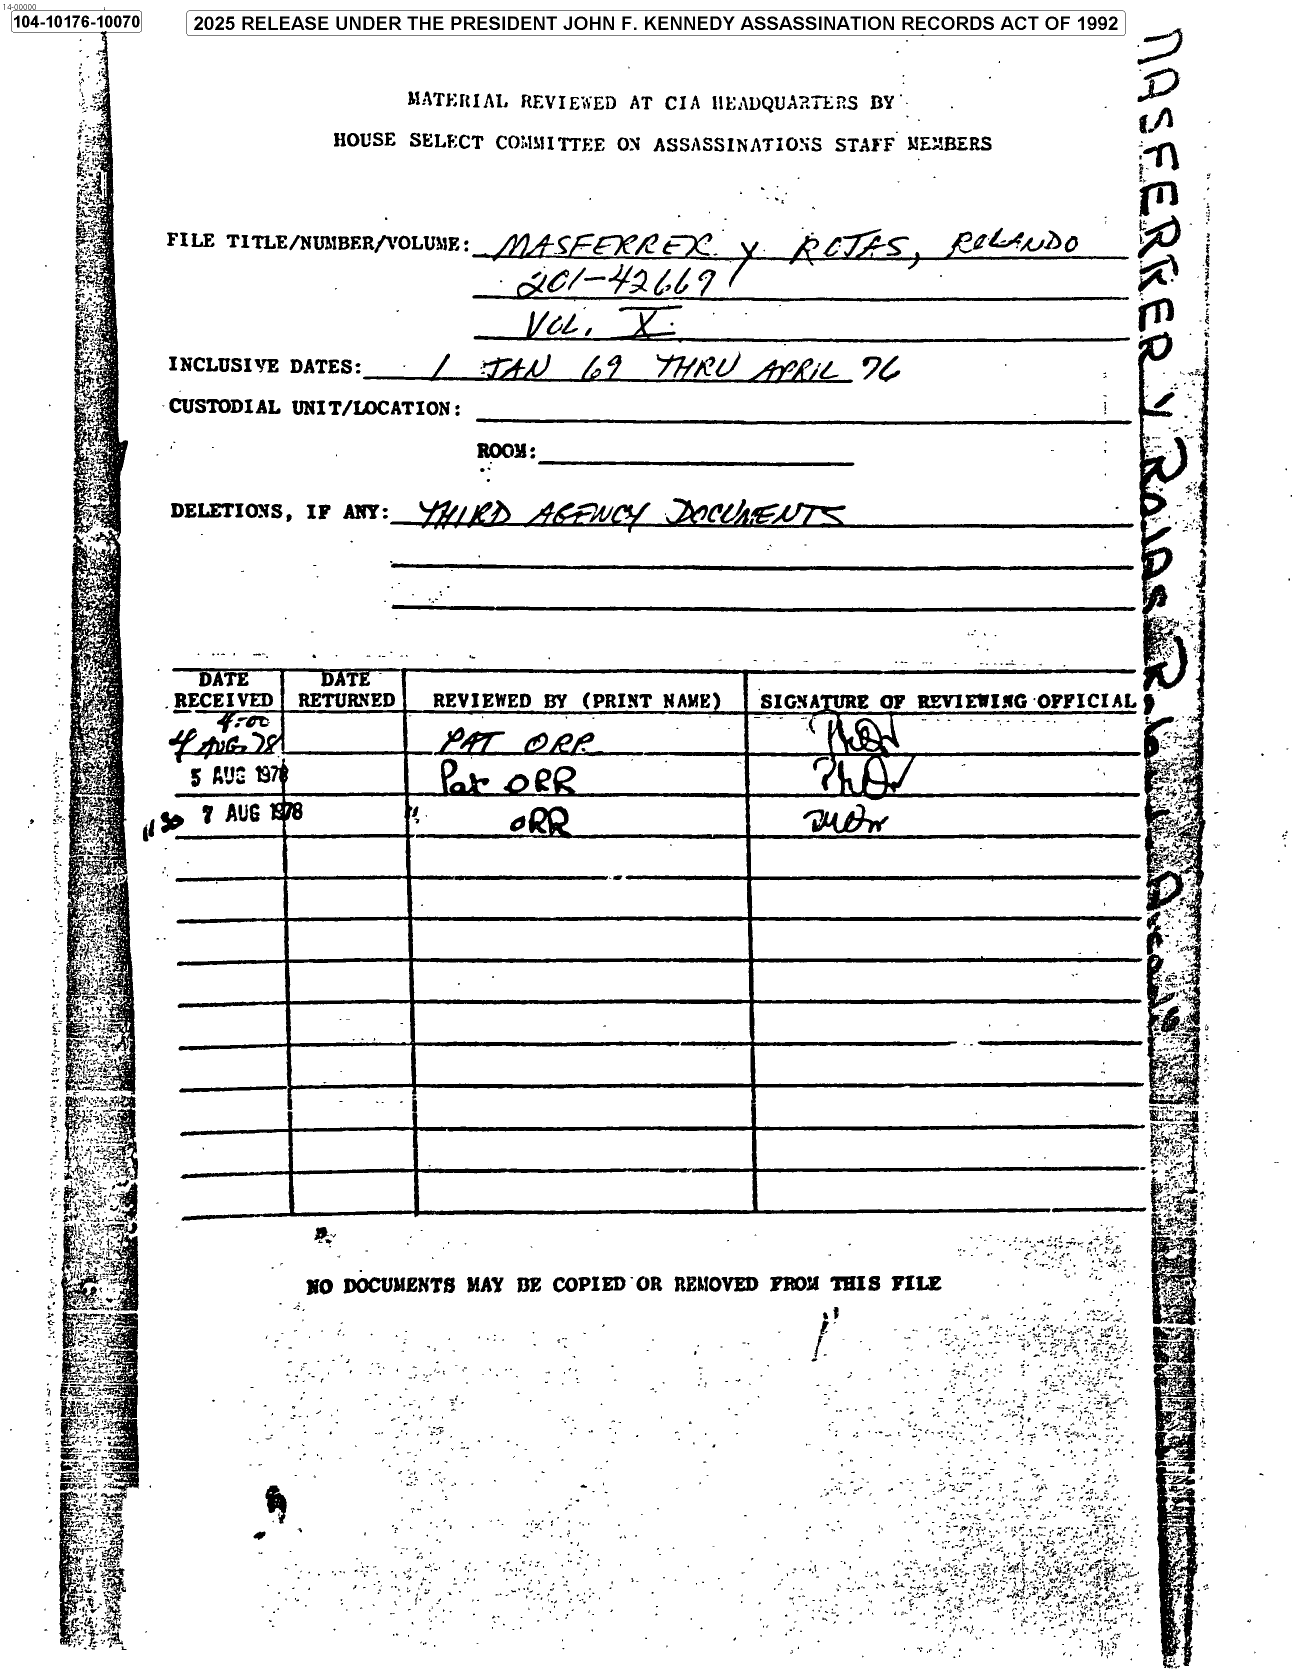 14-00000
104-10176-10070
2025 RELEASE UNDER THE PRESIDENT JOHN F. KENNEDY ASSASSINATION RECORDS ACT OF 1992
MATERIAL REVIEWED AT CIA HEADQUARTERS BY
HOUSE SELECT COMMITTEE ON ASSASSINATIONS STAFF MEMBERS
FILE TITLE/NUMBER/VOLUME: MASFERRER y ROJAS, ROLANDO
201-42669
VOL. X
INCLUSIVE DATES: 1 JAN 69 THRU APRIL 76
CUSTODIAL UNIT/LOCATION:
ROOM:
DELETIONS, IF ANY: THIRD AGENCY DOCUMENTS
DATE RECEIVED DATE RETURNED REVIEWED BY (PRINT NAME) SIGNATURE OF REVIEWING OFFICIAL
4:00
4 AUG 78 PAT ORR
5 AUG 1978 Pat ORR
1130 7 AUG 1978 " ORR
NO DOCUMENTS MAY BE COPIED OR REMOVED FROM THIS FILE
MASFERRER y ROJAS